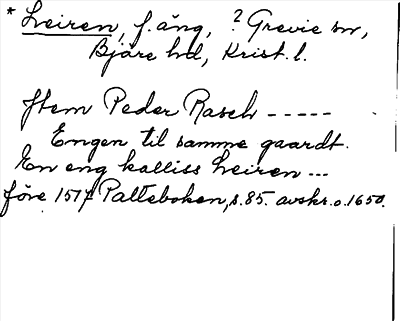 * Leiren, f. äng, ? Grevie sn,
Bjäre hd, Krist. l.
Jtem Peder Rasch -----
Engen til samme gaardt.
En eng kalliss Leiren ...
före 1517 Palteboken, s. 85. avskr. o. 1650.